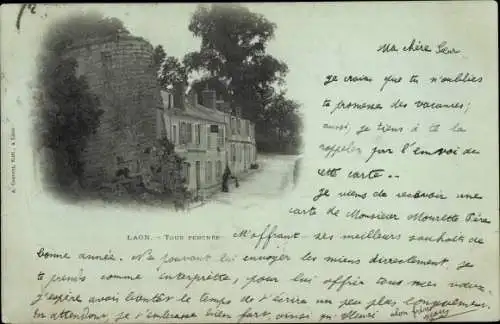 Ma chère Sœur
je crains que tu n'oublies
ta promesse des vacances;
aussi, je tiens à te la
rappeler par l'envoi de
cette carte ..
Je viens de recevoir une
carte de Monsieur Mourette Père
LAON. — TOUR PENCHÉE
M'offrant ses meilleurs souhaits de
bonne année. Ne pouvant lui envoyer les miens directement, je
te prends comme interprète, pour lui offrir tous mes vœux.
J'espère avoir bientôt le temps de t'écrire un peu plus longuement.
En attendant, je t'embrasse bien fort, ainsi qu'Henri.
ton frère